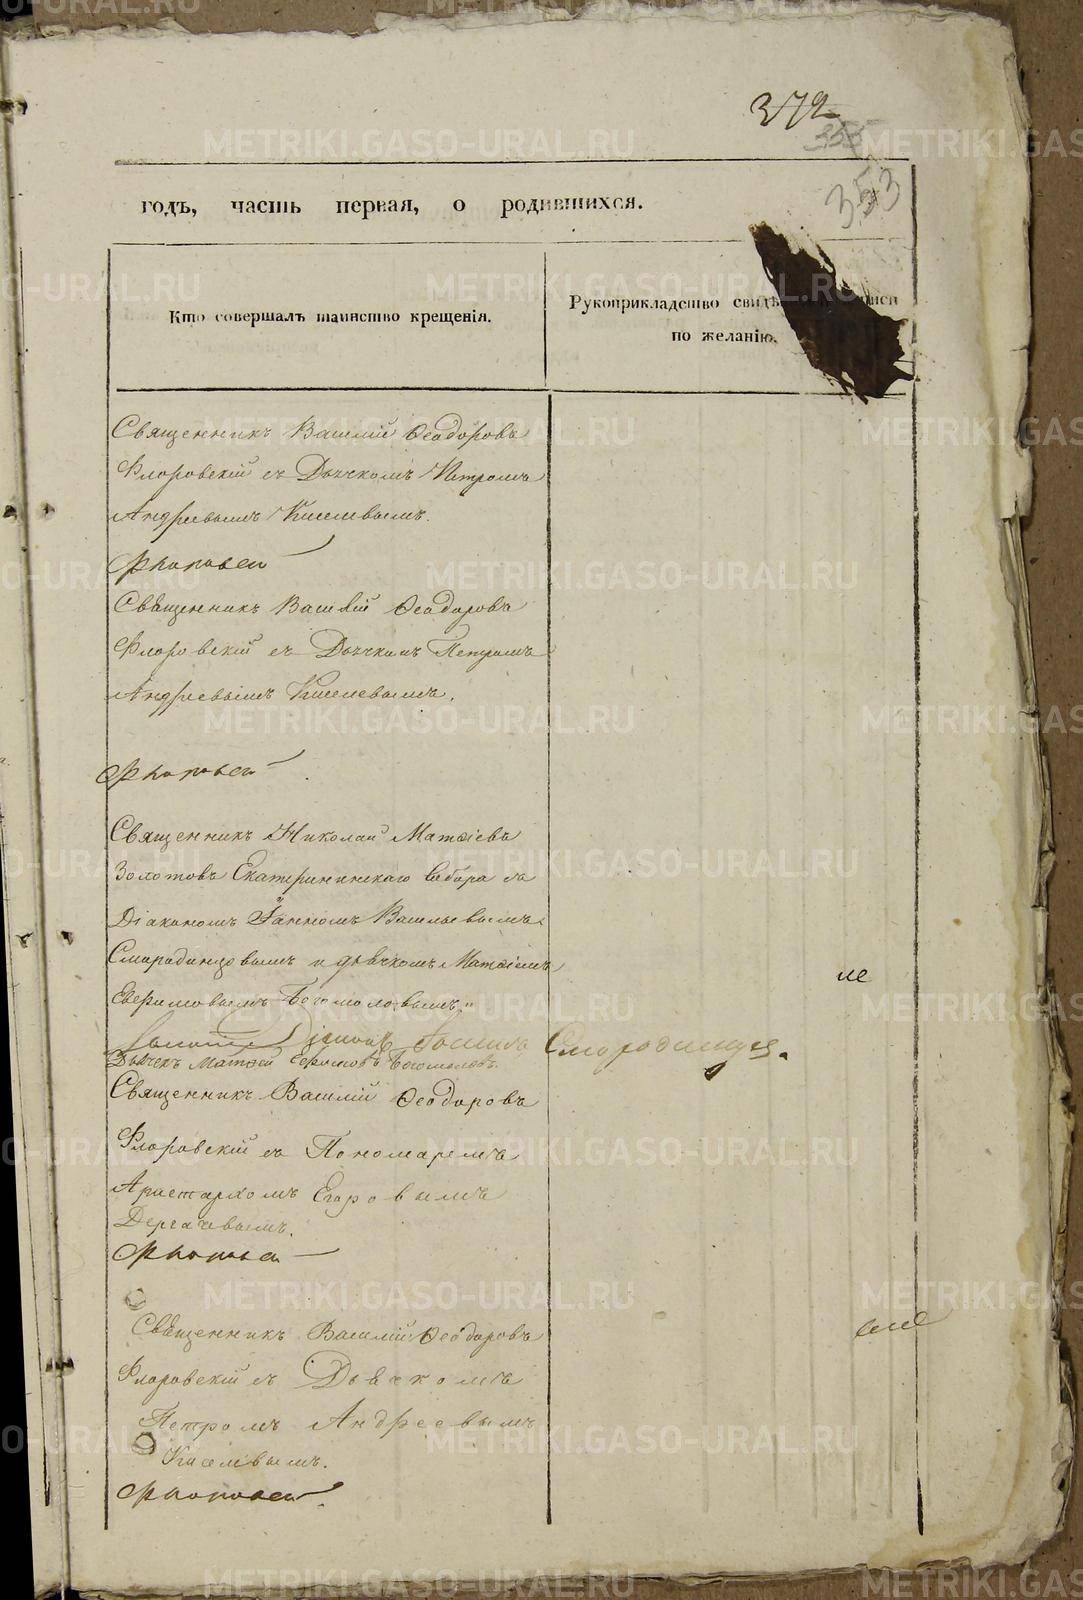 372
355
353
годъ, часть первая, о родившихся.
Кто совершалъ таинство крещенія.
Рукоприкладство свидѣ
по желанію.
Священникъ Василій Ѳеодоровъ
Флоровскій съ Дьячкомъ Петромъ
Андреевымъ Киселевымъ.
Флоровскій
Священникъ Василій Ѳеодоровъ
Флоровскій съ Дьячкомъ Петромъ
Андреевымъ Киселевымъ.
Флоровскій
Священникъ Николай Матѳіевъ
Золотовъ Екатерининскаго Собора съ
Діакономъ Іоанномъ Васильевымъ
Смородинцовымъ и дьячкомъ Матѳіемъ
Ефимовымъ Богомоловымъ.
Діаконъ Смородинцов.
Дьячекъ Матѳей Ефимовъ Богомоловъ.
Священникъ Василій Ѳеодоровъ
Флоровскій съ Пономаремъ
Аристархомъ Егоровымъ
Дергачевымъ.
Флоровскій
Священникъ Василій Ѳеодоровъ
Флоровскій съ Дьячкомъ
Петромъ Андреевымъ
Киселевымъ.
Флоровскій
METRIKI.GASO-URAL.RU